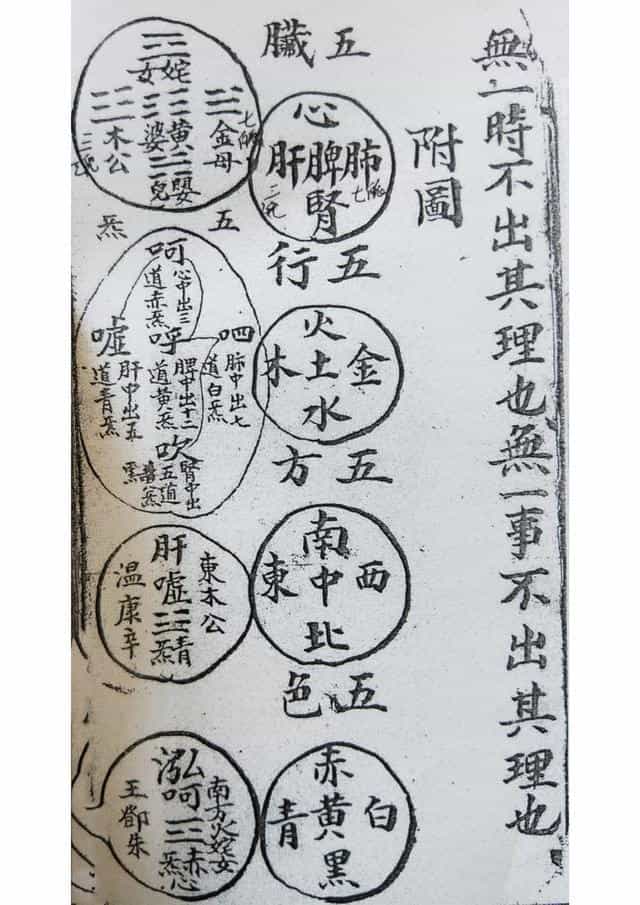 無一時不出其理也無一事不出其理也
附圖
五臟
肺
七魄
心
脾
腎
肝
三魂
五行
金
火
土
水
木
五方
西
南
中
北
東
五色
白
赤
黃
黑
青
金母
七魄
姹女
黃婆
嬰兒
木公
三魂
五炁
呬
肺中出七
道白炁
呵
心中出三
道赤炁
呼
脾中出十二
道黃炁
吹
腎中出
五道
黑
噓
肝中出五
道青炁
東木公
肝噓
青炁
溫康辛
南方火姹女
泓呵
赤炁心
王鄧朱